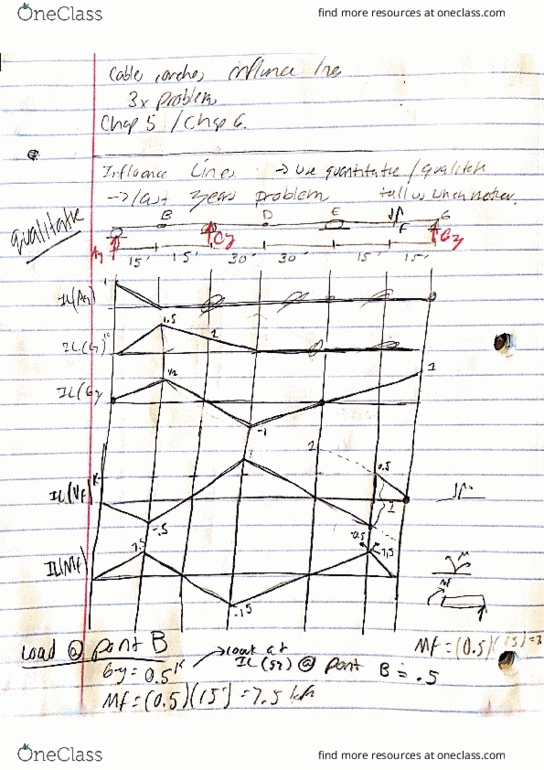 OneClass
find more resources at oneclass.com
Cables, arches, influence lines
3x problem
Chap 5 / Chap 6.
Influence Lines → use quantitative / qualitative
→ last years problem tell us which method.
qualitative
B D E F G
Ay Cy Gy
15' 15' 30' 30' 15' 15'
IL(Ay) 1
IL(Cy) 1.5 1
IL(Gy 1/2 -1 1
IL(VF) -.5 1 0.5 -0.5 1
IL(MF) 7.5 -15 7.5
M
MF
Load @ point B
MF = (0.5)(15)=
Gy = 0.5k → look at
IL(Gy) @ point B = .5
MF = (0.5)(15') = 7.5 kft
OneClass
find more resources at oneclass.com